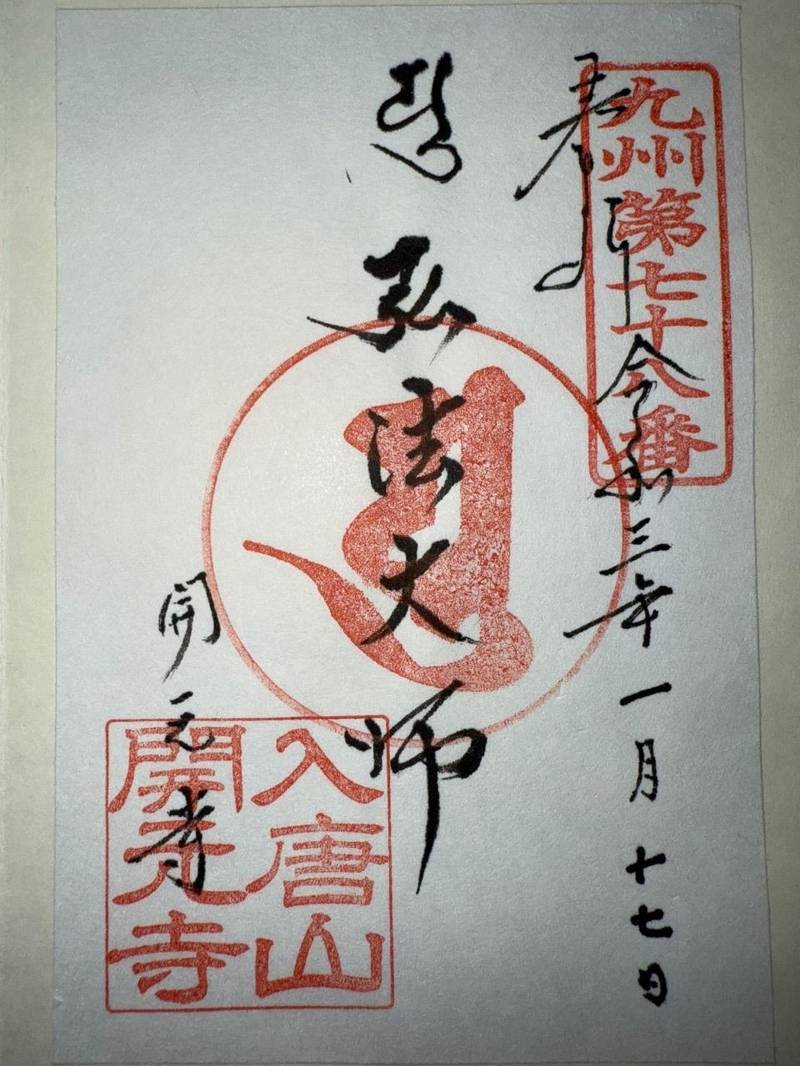 九州第七十八番
奉拝 令和三年一月十七日
弘法大師
開元寺
入唐山
開元寺